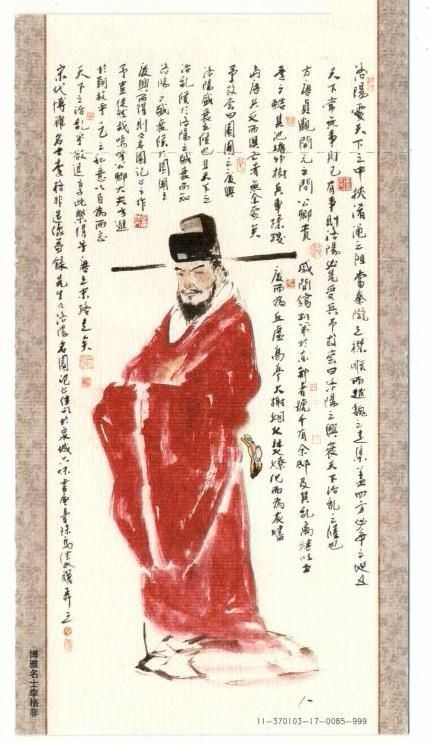 洛陽處天下之中挾淆澠之阻當秦隴之襟喉而趙魏之走集蓋四方必爭之地也
天下常無事則已有事則洛陽必先受兵予故嘗曰洛陽之興衰天下治亂之候也
方唐貞觀開元之間公卿貴
戚開館列第於東都者號千有余邸及其亂離繼以五
季之酷其池塘竹樹兵車蹂踐
廢而為丘墟高亭大榭烟火焚燎化而為灰燼
與唐共滅而俱亡者無余處矣
予故嘗曰園圃之廢興
洛陽盛衰之候也且天下之
治亂候於洛陽之盛衰而知
洛陽之盛衰候於園圃之
廢興而得則名園記之作
予豈徒然哉嗚呼公卿大夫方進
於朝放乎一己之私意以自為而忘
天下之治乎欲退享此樂得乎唐之末路是矣
宋代博雅名士李格非造像並錄先生之洛陽名園記之佳句於泉城
博雅名士李格非
11-370103-17-0085-999